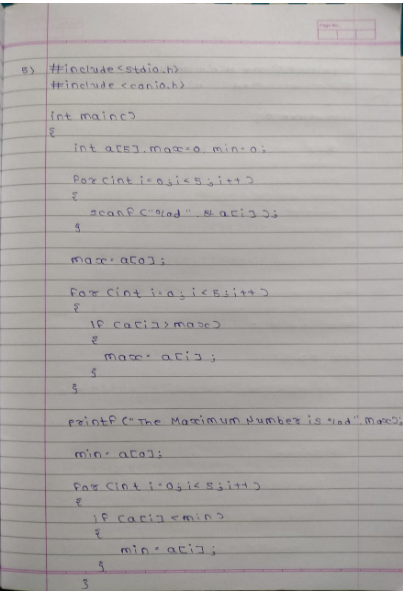 5) #include<stdio.h>
#include<conio.h>
int main()
{
int a[5], max=0, min=0;
for (int i=0;i<5;i++)
{
scanf("%d", & a[i]);
}
max= a[0];
for (int i=0; i<5;i++)
{
if (a[i]>max)
{
max= a[i];
}
}
printf("The Maximum Number is %d", max);
min= a[0];
for (int i=0;i<5;i++)
{
if (a[i]<min)
{
min = a[i];
}
}